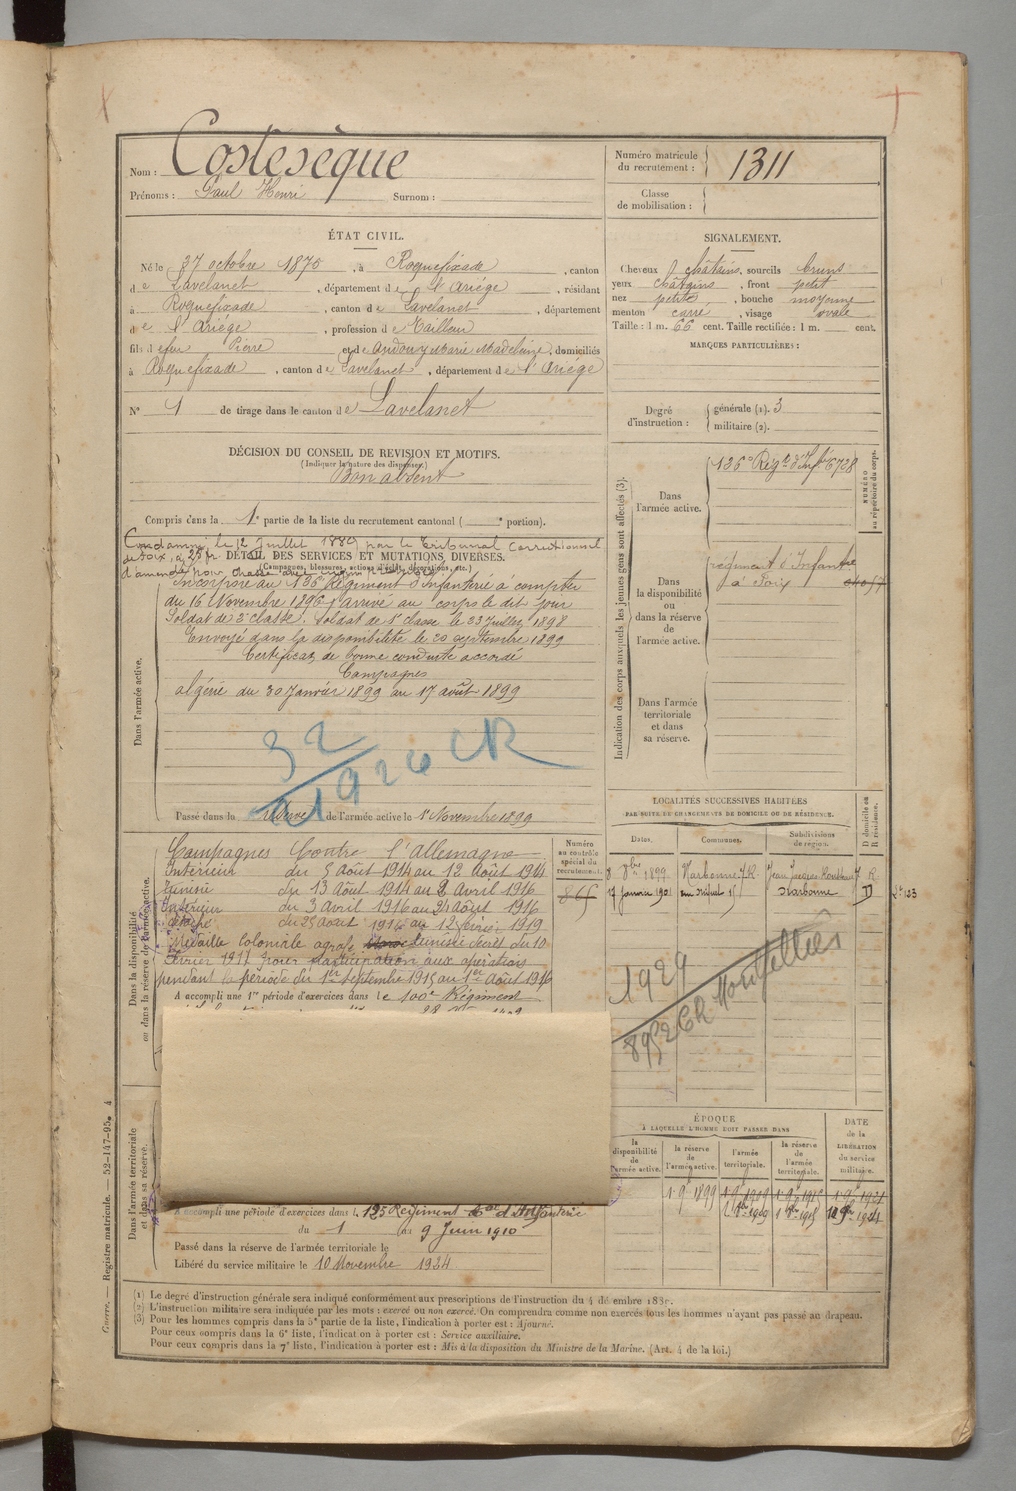 Nom : Costesèque
Prénoms : Paul Henri Surnom :
Numéro matricule du recrutement : 1311
Classe de mobilisation :
ÉTAT CIVIL.
Né le 27 octobre 1875, à Roquefixade, canton
de Lavelanet, département de l'Ariége, résidant
à Roquefixade, canton de Lavelanet, département
de l'Ariége, profession de
fils de feu Pierre et de Andouy Marie Madeleine, domiciliés
à Roquefixade, canton de Lavelanet, département de l'Ariége
N° 1 de tirage dans le canton de Lavelanet
SIGNALEMENT.
Cheveux châtains, sourcils bruns
yeux châtains, front petit
nez petit, bouche moyenne
menton carré, visage ovale
Taille : 1 m. 66 cent. Taille rectifiée : 1 m. cent.
MARQUES PARTICULIÈRES :
Degré d'instruction : générale (1). 3
militaire (2).
DÉCISION DU CONSEIL DE REVISION ET MOTIFS.
(Indiquer la nature des dispenses.)
Bon absent
Compris dans la 1e partie de la liste du recrutement cantonal ( e portion).
Condamné le 12 Juillet 1889 par le Tribunal Correctionnel
de Foix, à 25 fr.
d'amende pour chasse avec engins
DÉTAIL DES SERVICES ET MUTATIONS DIVERSES.
(Campagnes, blessures, actions d'éclat, décorations, etc.)
Dans l'armée active.
Incorporé au 136e Régiment d'Infanterie à compter
du 16 Novembre 1896, arrivé au corps le dit jour
Soldat de 2e classe. Soldat de 1e classe le 23 Juillet 1898
Envoyé dans la disponibilité le 20 septembre 1899
Certificat de bonne conduite accordé
Campagnes
algérie du 30 Janvier 1899 au 17 août 1899
32
1926 CR
Passé dans la réserve de l'armée active le 1er Novembre 1899
Indication des corps auxquels les jeunes gens sont affectés (3).
NUMÉRO au répertoire du corps.
Dans l'armée active.
136e Régt d'Inf. 6728
Dans la disponibilité ou dans la réserve de l'armée active.
régiment d'Infantie
à Foix
Dans l'armée territoriale et dans sa réserve.
LOCALITÉS SUCCESSIVES HABITÉES
PAR SUITE DE CHANGEMENTS DE DOMICILE OU DE RÉSIDENCE.
Dates. Communes. Subdivisions de région. D domicile ou R résidence.
8 8bre 1899 Narbonne R
17 janvier 1901 Narbonne D
1924
8952 CR Montpellier
Dans la disponibilité ou dans la réserve de l'armée active.
Numéro au contrôle spécial du recrutement.
865
Campagnes Contre l'allemagne
Intérieur du 5 Août 1914 au 12 Août 1914
Tunisie du 13 Août 1914 au 2 Avril 1916
Intérieur du 3 Avril 1916 au 24 Août 1916
détaché du 25 août 1916 au 12 février 1919
Médaille coloniale agrafe Tunisie décret du 10
Février 1917 pour participation aux opérations
pendant la période du 1er septembre 1915 au 1er Août 1916
A accompli une 1re période d'exercices dans le 100e Régiment
Dans l'armée territoriale et dans sa réserve.
A accompli une période d'exercices dans le 125 Régiment d'Infanterie
du 1 au 9 Juin 1910
Passé dans la réserve de l'armée territoriale le
Libéré du service militaire le 10 Novembre 1924
ÉPOQUE
À LAQUELLE L'HOMME DOIT PASSER DANS
la disponibilité de l'armée active.
la réserve de l'armée active.
l'armée territoriale.
la réserve de l'armée territoriale.
DATE de la LIBÉRATION du service militaire.
(1) Le degré d'instruction générale sera indiqué conformément aux prescriptions de l'instruction du 4 décembre 1889.
(2) L'instruction militaire sera indiquée par les mots : exercé ou non exercé. On comprendra comme non exercés tous les hommes n'ayant pas passé au drapeau.
(3) Pour les hommes compris dans la 5e partie de la liste, l'indication à porter est : Ajourné.
Pour ceux compris dans la 6e liste, l'indication à porter est : Service auxiliaire.
Pour ceux compris dans la 7e liste, l'indication à porter est : Mis à la disposition du Ministre de la Marine. (Art. 4 de la loi.)
Guerre. — Registre matricule. — 52-147-95. 4